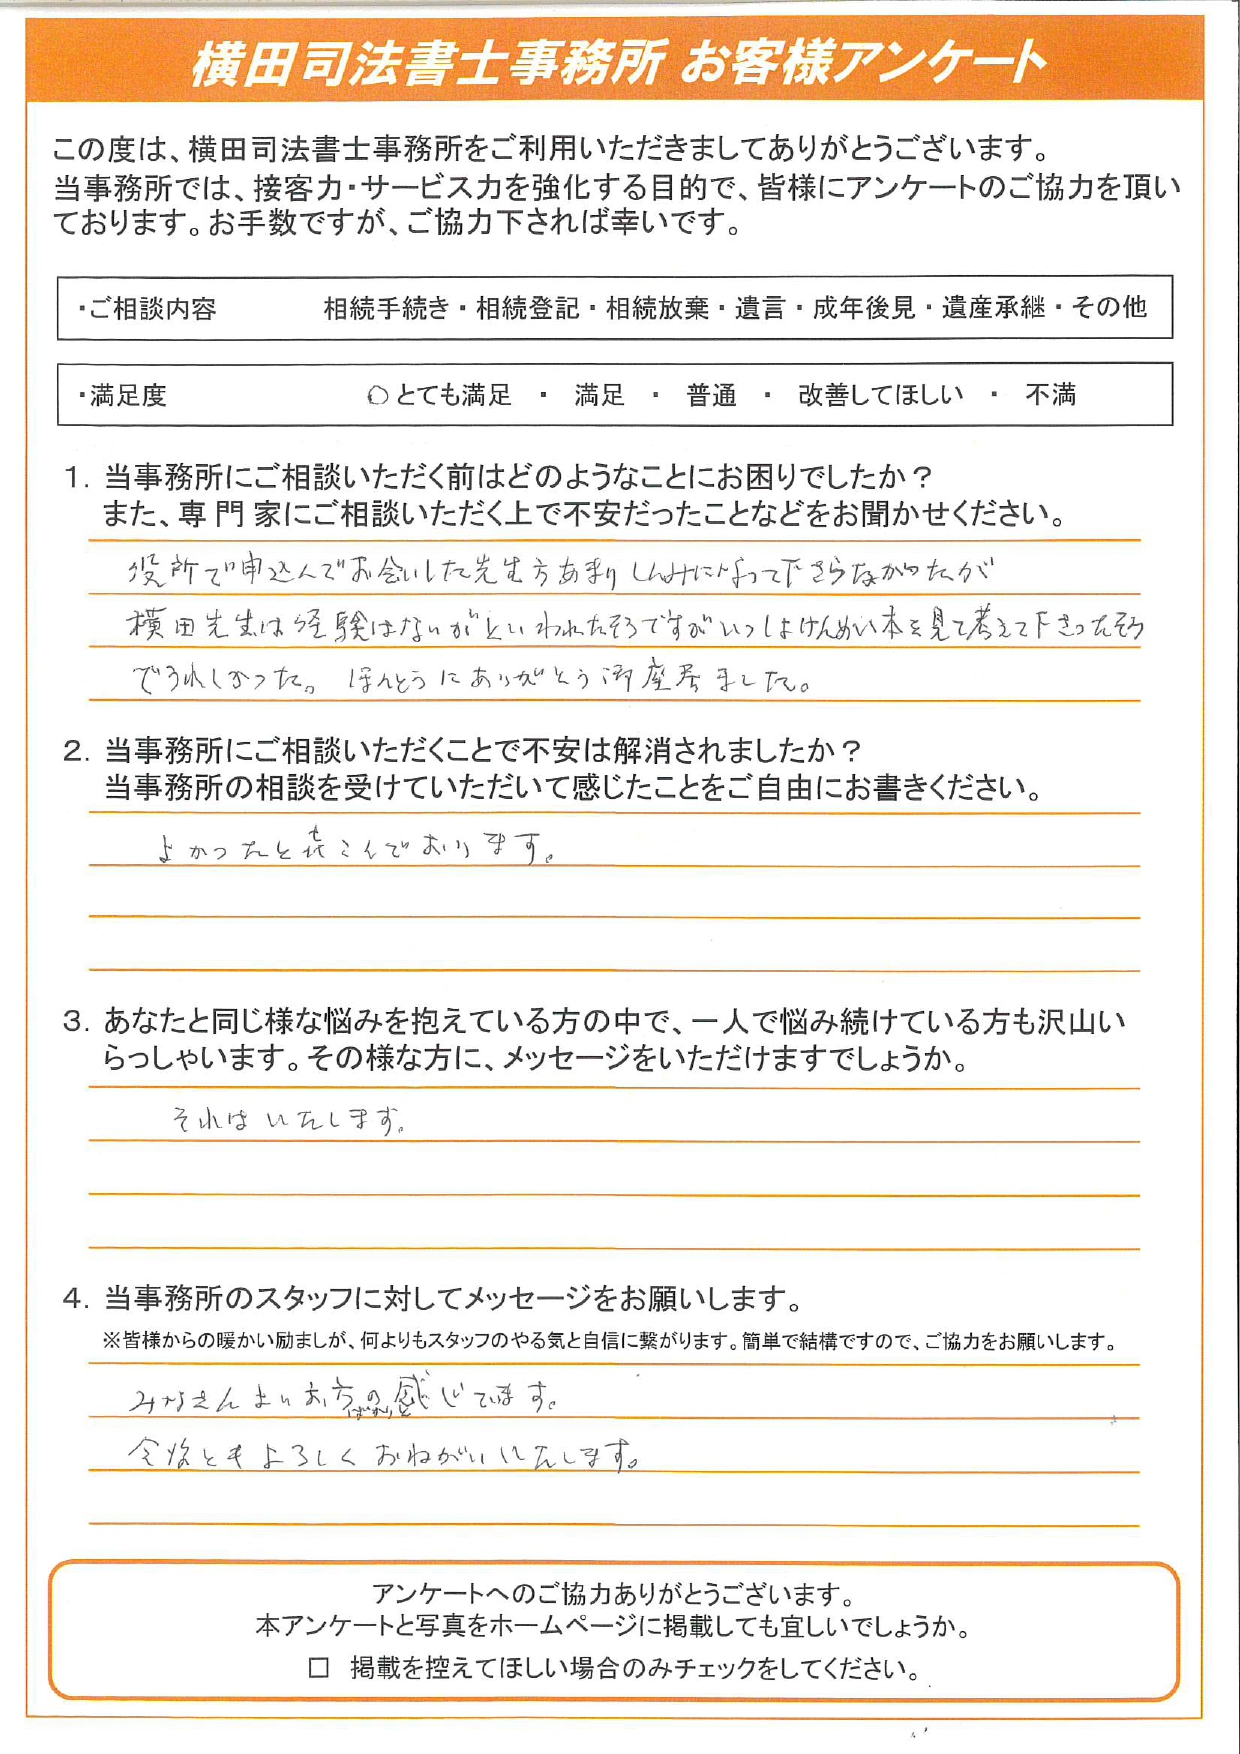 横田司法書士事務所 お客様アンケート
この度は、横田司法書士事務所をご利用いただきましてありがとうございます。
当事務所では、接客力・サービス力を強化する目的で、皆様にアンケートのご協力を頂い
ております。お手数ですが、ご協力下されば幸いです。
・ご相談内容 相続手続き・相続登記・相続放棄・遺言・成年後見・遺産承継・その他
・満足度 ○とても満足 ・ 満足 ・ 普通 ・ 改善してほしい ・ 不満
1. 当事務所にご相談いただく前はどのようなことにお困りでしたか？
また、専門家にご相談いただく上で不安だったことなどをお聞かせください。
役所で申込んでお会いした先生方あまりしんみになって下さらなかったが
横田先生は経験はないがといわれたそうですがいっしょけんめい本を見て考えて下さったそう
でうれしかった。ほんとうにありがとう御座居ました。
2. 当事務所にご相談いただくことで不安は解消されましたか？
当事務所の相談を受けていただいて感じたことをご自由にお書きください。
よかったと㐂こんでおります。
3. あなたと同じ様な悩みを抱えている方の中で、一人で悩み続けている方も沢山い
らっしゃいます。その様な方に、メッセージをいただけますでしょうか。
それはいたします。
4. 当事務所のスタッフに対してメッセージをお願いします。
※皆様からの暖かい励ましが、何よりもスタッフのやる気と自信に繋がります。簡単で結構ですので、ご協力をお願いします。
みなさんよいお方ばかりと感じてます。
今後ともよろしくおねがいいたします。
アンケートへのご協力ありがとうございます。
本アンケートと写真をホームページに掲載しても宜しいでしょうか。
□ 掲載を控えてほしい場合のみチェックをしてください。